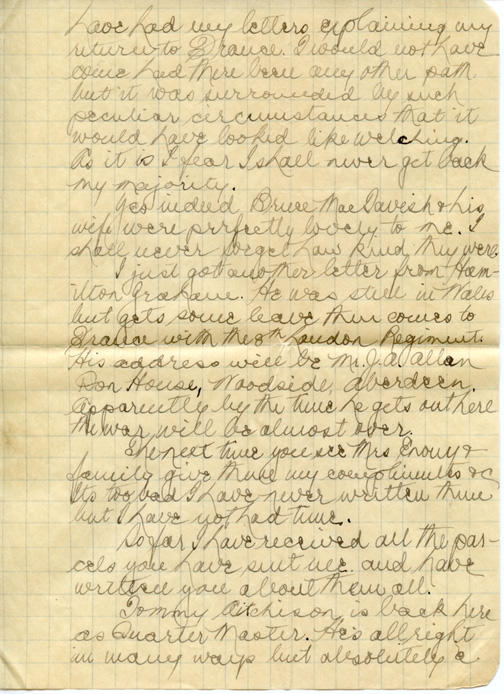 have had my letters explaining my
return to France. I would not have
come had there been any other path
but it was surrounded by such
peculiar circumstances that it
would have looked like welching.
As it is I fear I shall never get back
my majority.
Yes indeed Bruce MacTavish & his
wife were perfectly lovely to me. I
shall never forget how kind they were.
I just got another letter from Ham-
ilton Grahame. He was still in Wales
but gets some leave then comes to
France with the 8th London Regiment.
His address will be Mr. J. A. Allan
Don House, Woodside, Aberdeen.
Apparently by the time he gets out here
the war will be almost over.
The next time you see Mrs &
family give them my compliments &c
Its too bad I have never written them
but I have not had time.
So far I have received all the par-
cels you have sent me and have
written you about them all.
Tommy Aitchison is back here
as Quarter Master. He's allright
in many ways but absolutely a